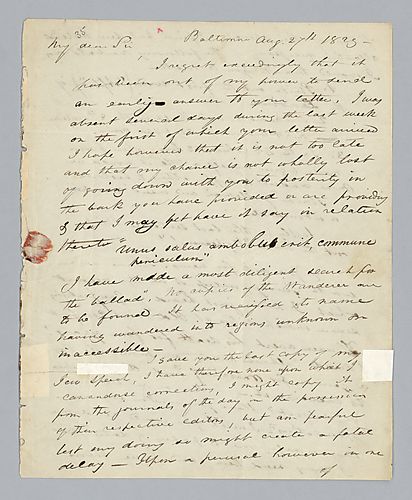 36
My dear Sir Baltimore Aug. 27th 1823 —
I regret exceedingly that it
has been out of my power to send
an early answer to your letter, I was
absent several days during the last week
on the first of which your letter arrived
I hope however that it is not too late
and that my chance is not wholly lost
of going down with you to posterity in
the bark you have provided or are providing
& that I may yet have it say in relation
thereto "Unus salus ambobus erit, commune
periculum"
I have made a most diligent search for
the ballad. No copies of the Wanderer are
to be found It has verified its name
having wandered into regions unknown or
inaccessible —
I gave you the last copy of my
Jew Speech, I have therefore none upon which
connection, I might copy it
from the journals of the day in the possession
of their respective editors, but am fearful
lest my doing so might create a fatal
delay — Upon a perusal however on one
of